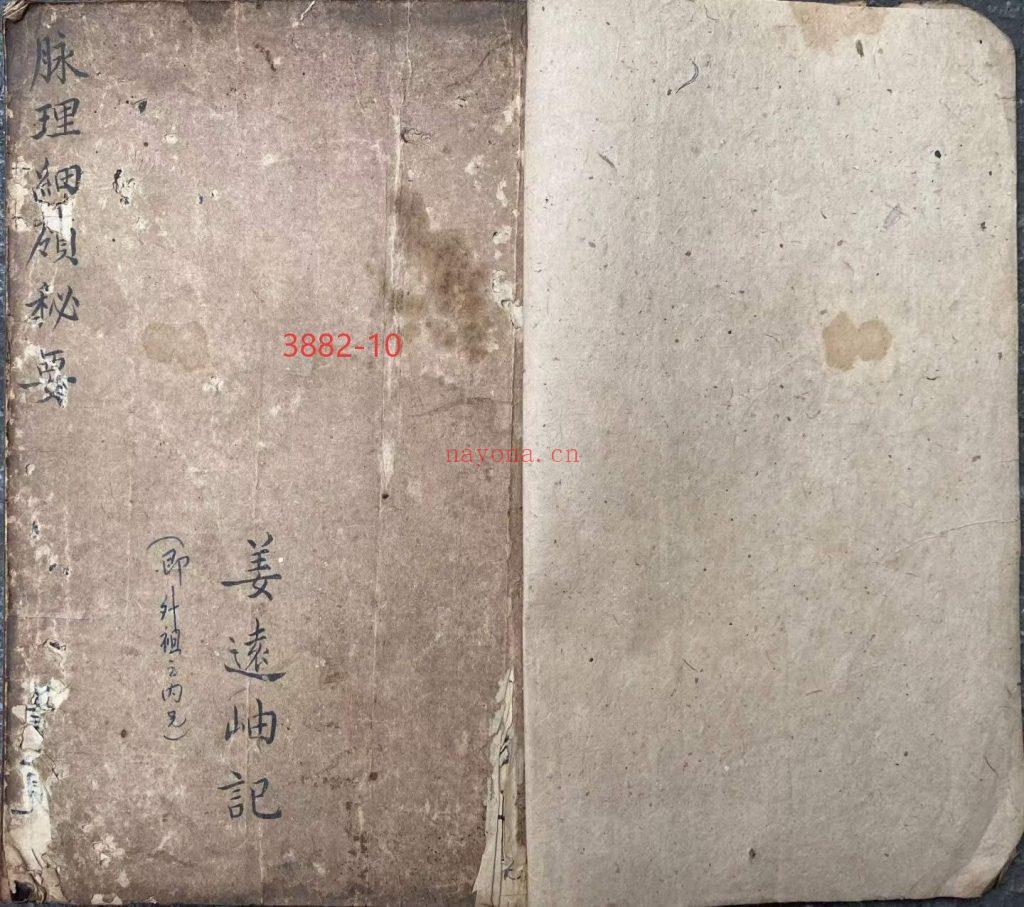 脉理細領秘要
姜遠岫記
（即外祖之内兄）
3882-10
nayona.cn